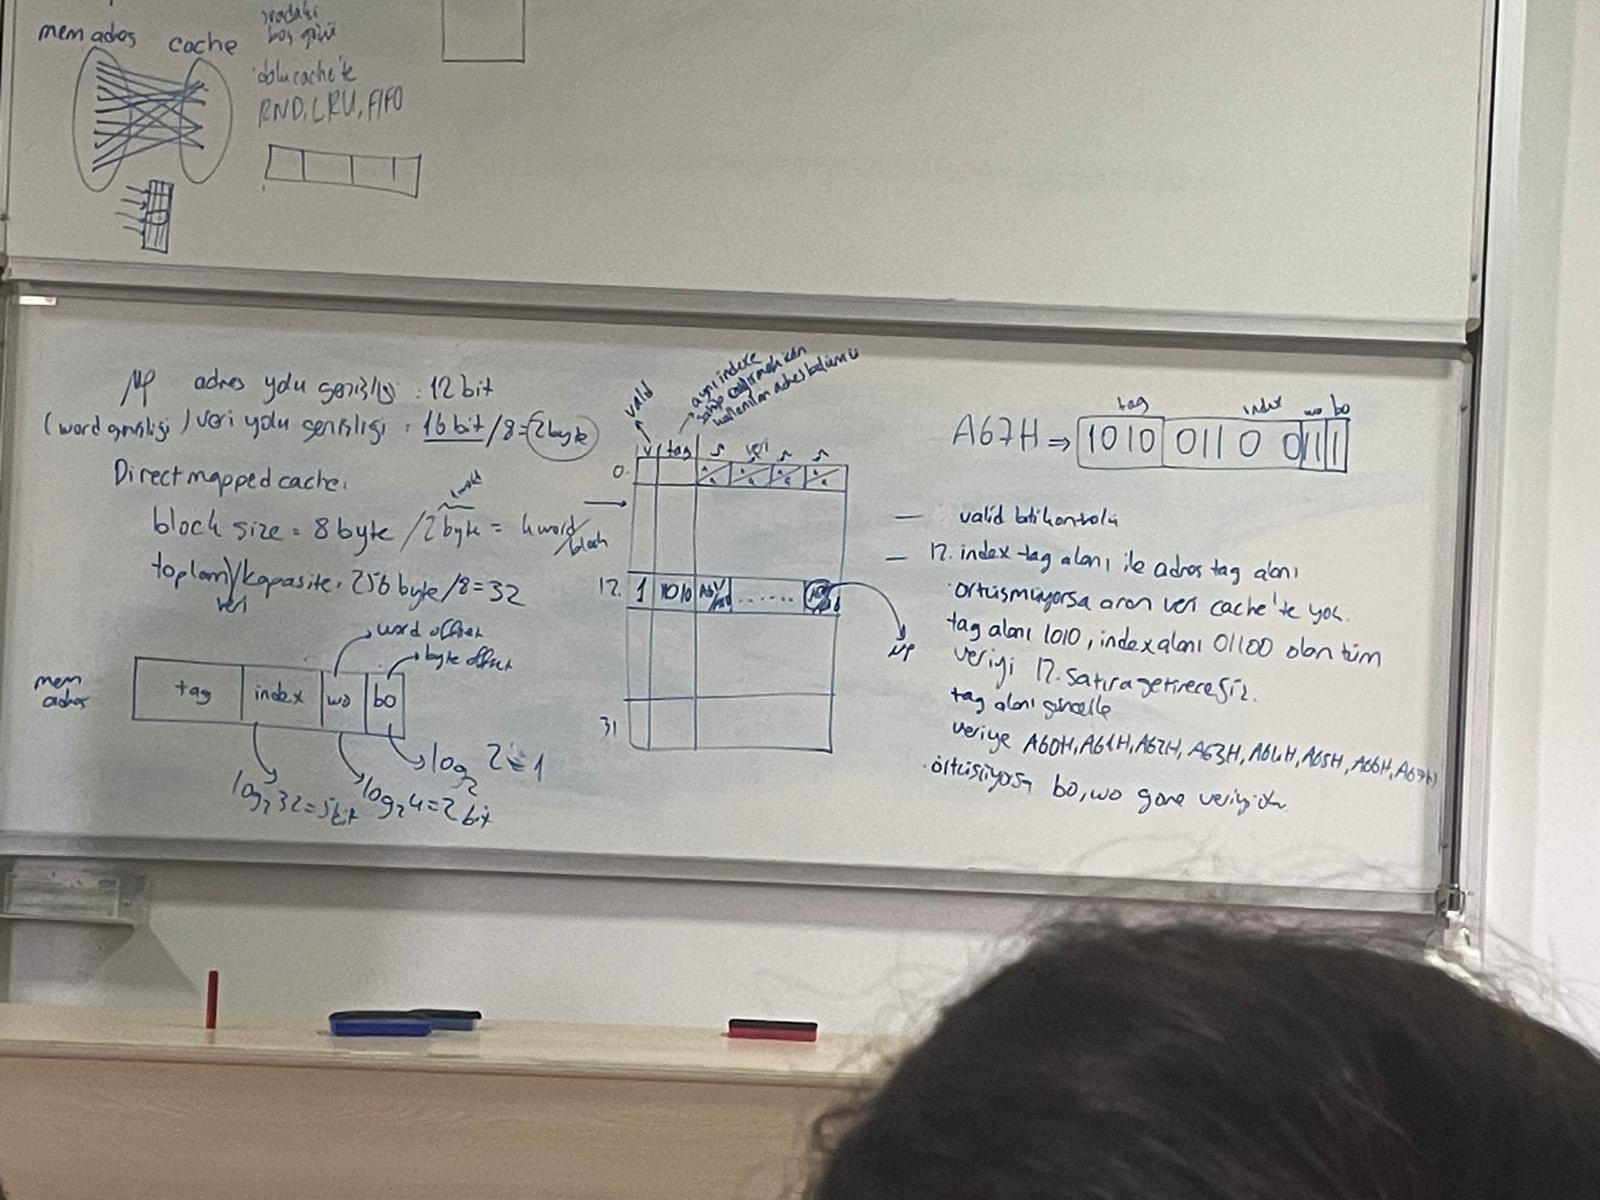 mem adres cache
sıradaki
boş gözü
dolu cache'te
RND, LRU, FIFO
µP adres yolu genişliği : 12 bit
(word genişliği) veri yolu genişliği : 16 bit /8 = 2byte
Direct mapped cache:
1 word
block size = 8 byte / 2 byte = 4 word/block
toplam/kapasite: 256 byte /8 = 32
veri
word offset
byte offset
mem adres
tag index wo bo
log₂ 32 = 5 bit
log₂ 4 = 2 bit
log₂ 2 = 1
valid
aynı indexe
sahip
kullanılan adres bölümü
V tag veri
0
12. 1 1010 ......
µP
31
tag index wo bo
A67H ⇒ 1010 011 0 0 11 1
— valid biti kontrolü
— 12. index tag alanı ile adres tag alanı
örtüşmüyorsa aran veri cache'te yok.
tag alanı 1010, index alanı 01100 olan tüm
veriyi 12. satıra getireceğiz.
tag alanı güncelle
veriye A60H, A61H, A62H, A63H, A64H, A65H, A66H, A67H
örtüşüyorsa bo, wo göre veriyi